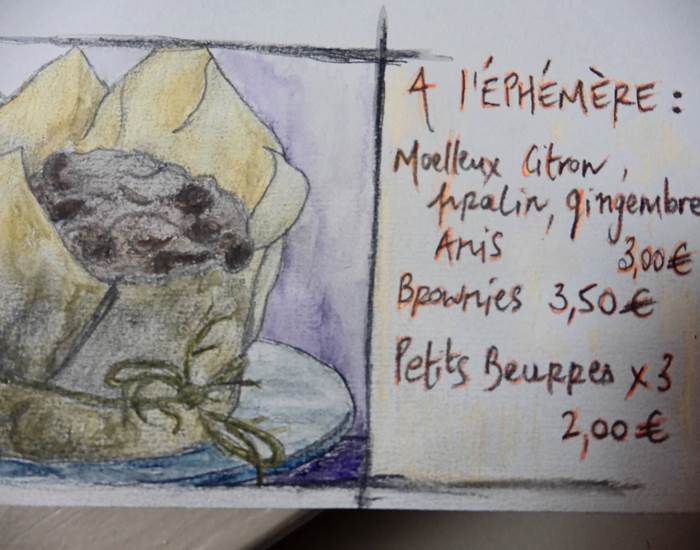 A l'ÉPHÉMÈRE :
Moelleux Citron,
pralin, gingembre
Anis 3,00€
Brownies 3,50€
Petits Beurres x3
2,00€